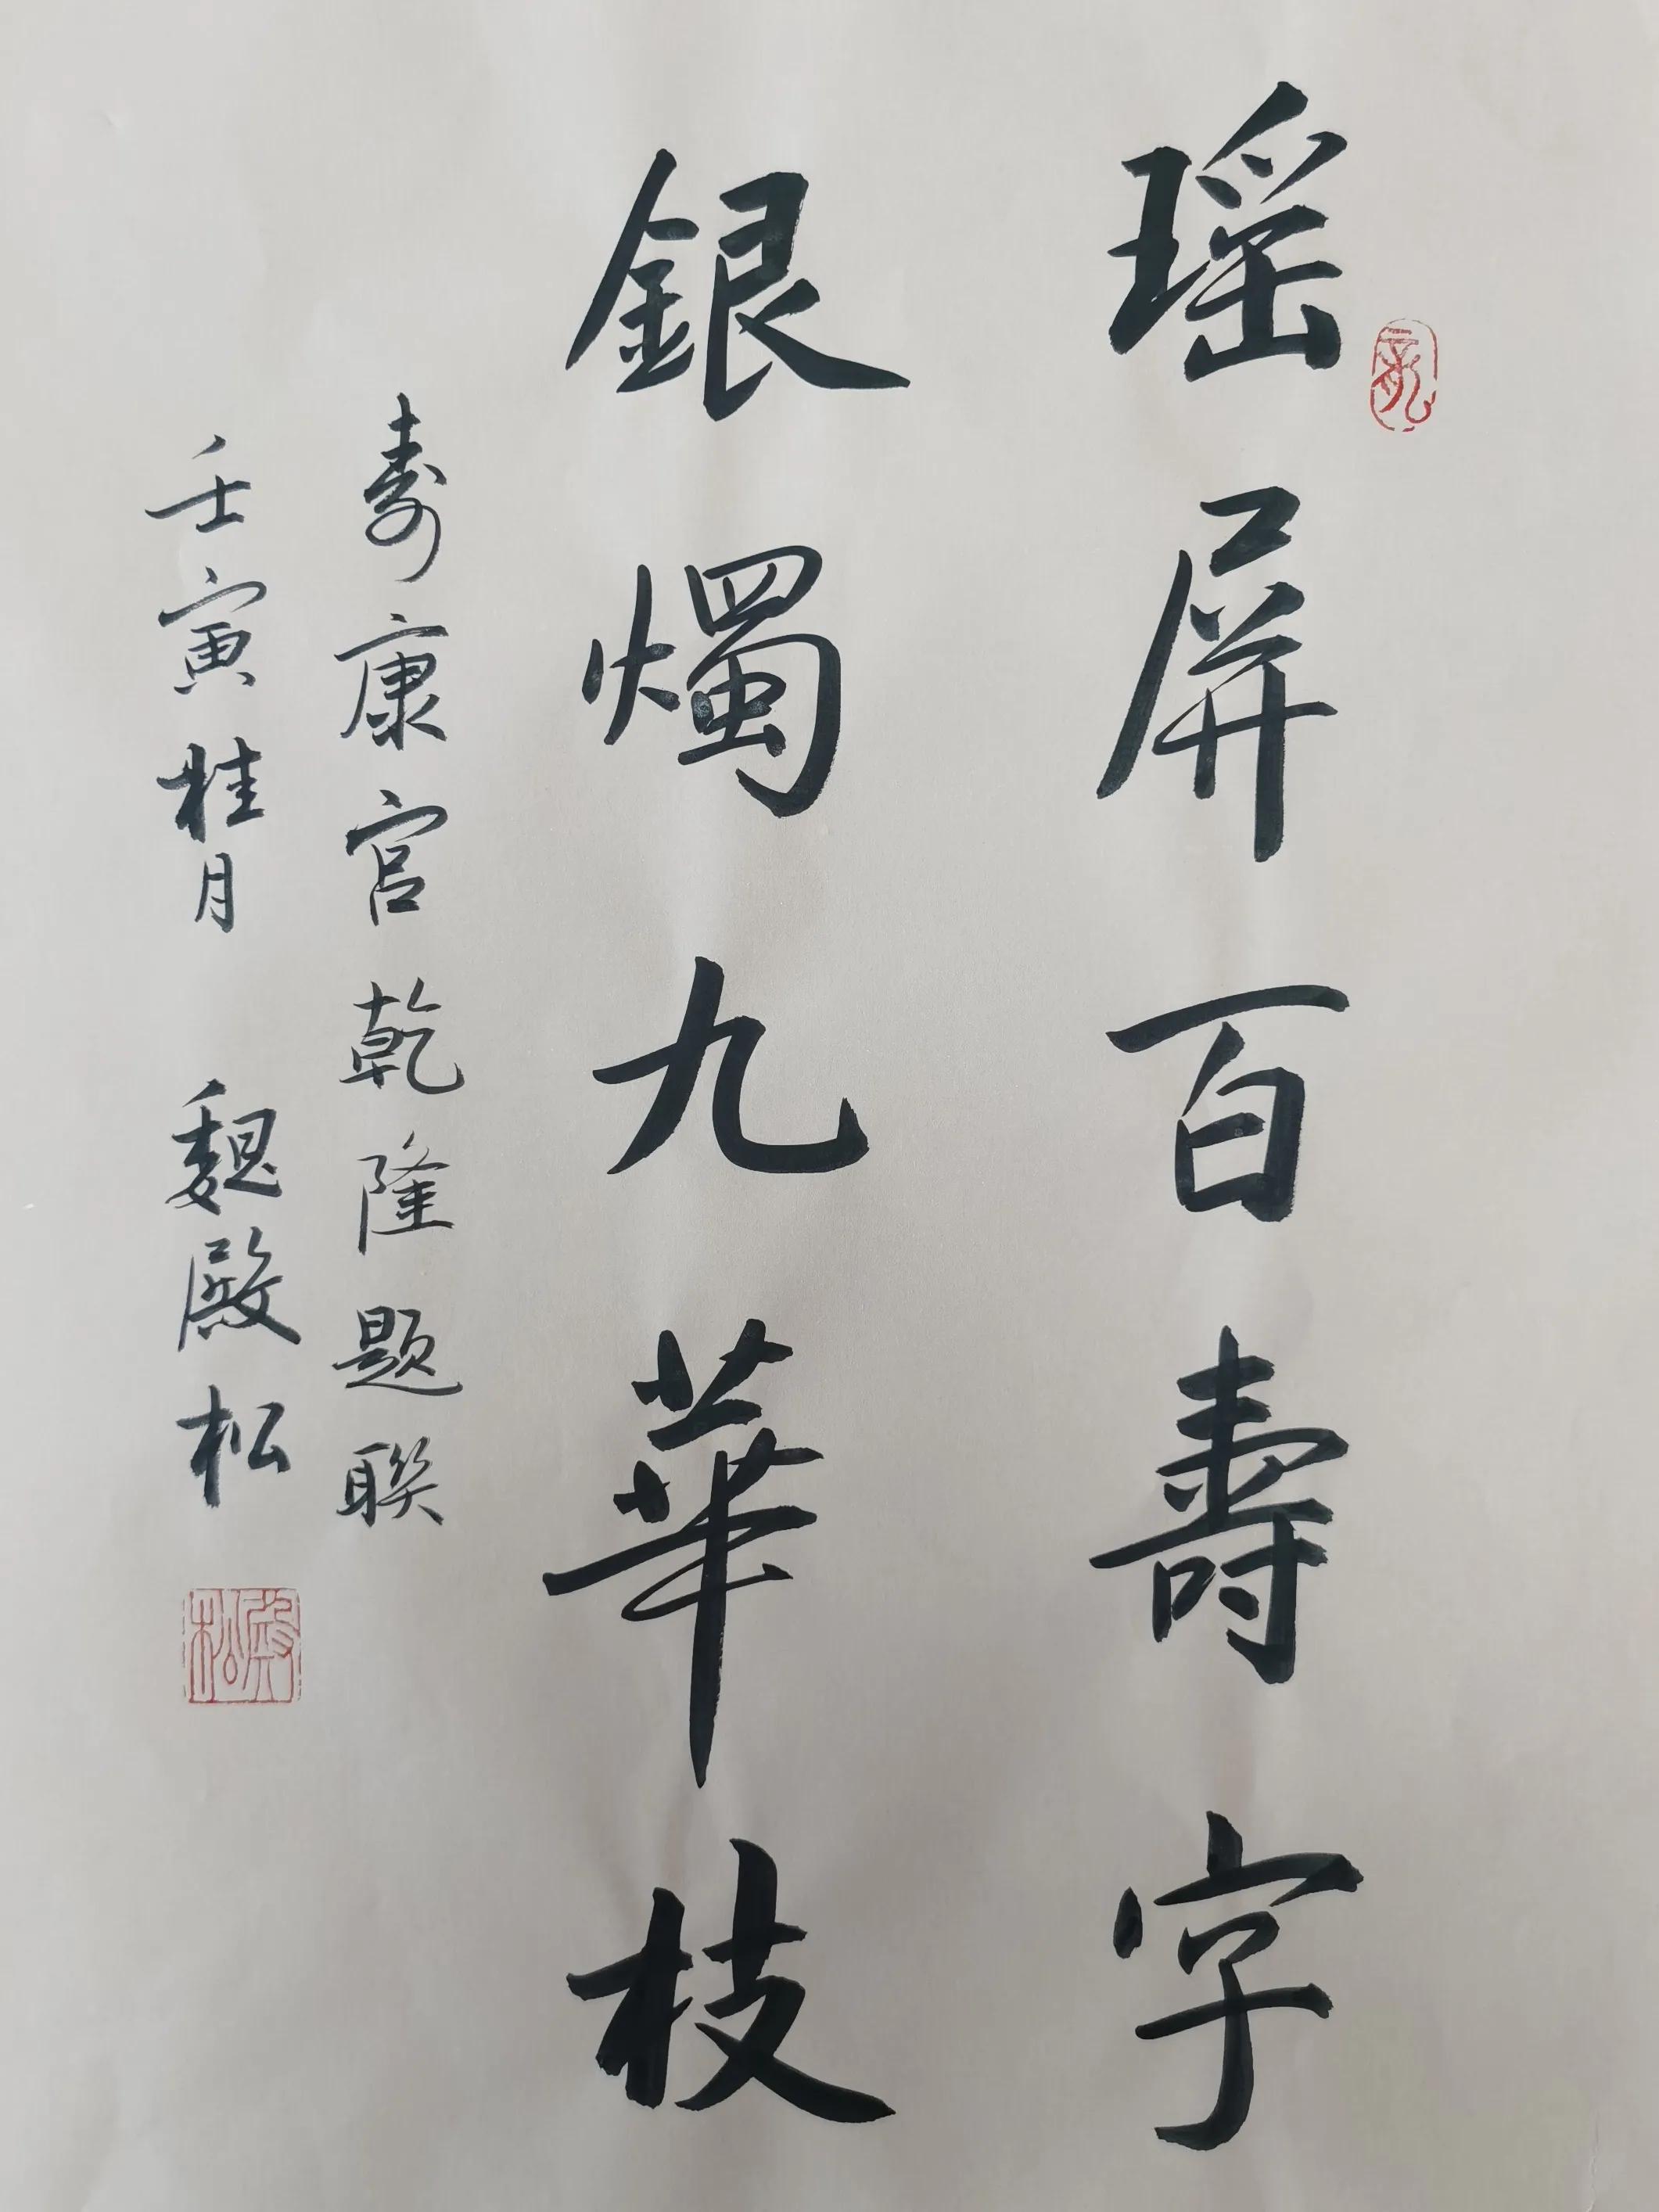 瑶屏百壽字
銀燭九華枝
寿康宫乾隆题联
壬寅桂月 魏殿松
殿松